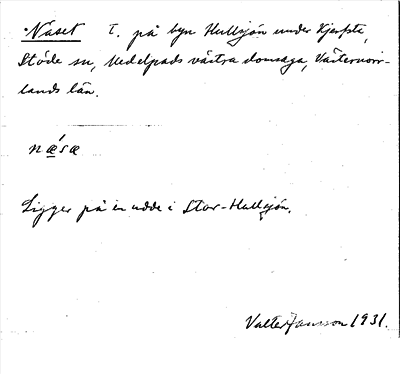 Naset T. på byn Hullsjön under Kjerfste,
Stöde sn, Medelpads västra domsaga, Västernorr-
lands län.
næ´sæ
Ligger på en udde i Stor-Hullsjön.
Valter Jansson 1931.